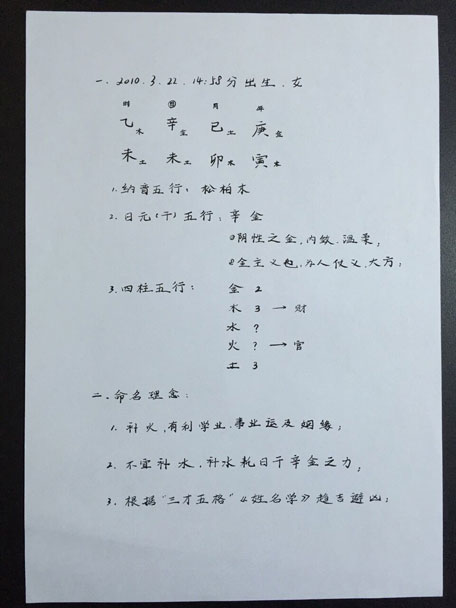 一、2010.3.22.14:58分出生、女
时 日 月 年
乙木 辛金 己土 庚金
未土 未土 卯木 寅木
1.纳音五行：松柏木
2.日元(干)五行：辛金
①阴性之金、内敛、温柔；
②金主义气、为人仗义、大方；
3.四柱五行： 金 2
木 3 → 财
水 ?
火 ? → 官
土 3
二、命名理念：
1.补火，有利学业、事业运及姻缘；
2.不宜补水，补水耗日干辛金之力；
3.根据"三才五格"《姓名学》趋吉避凶；